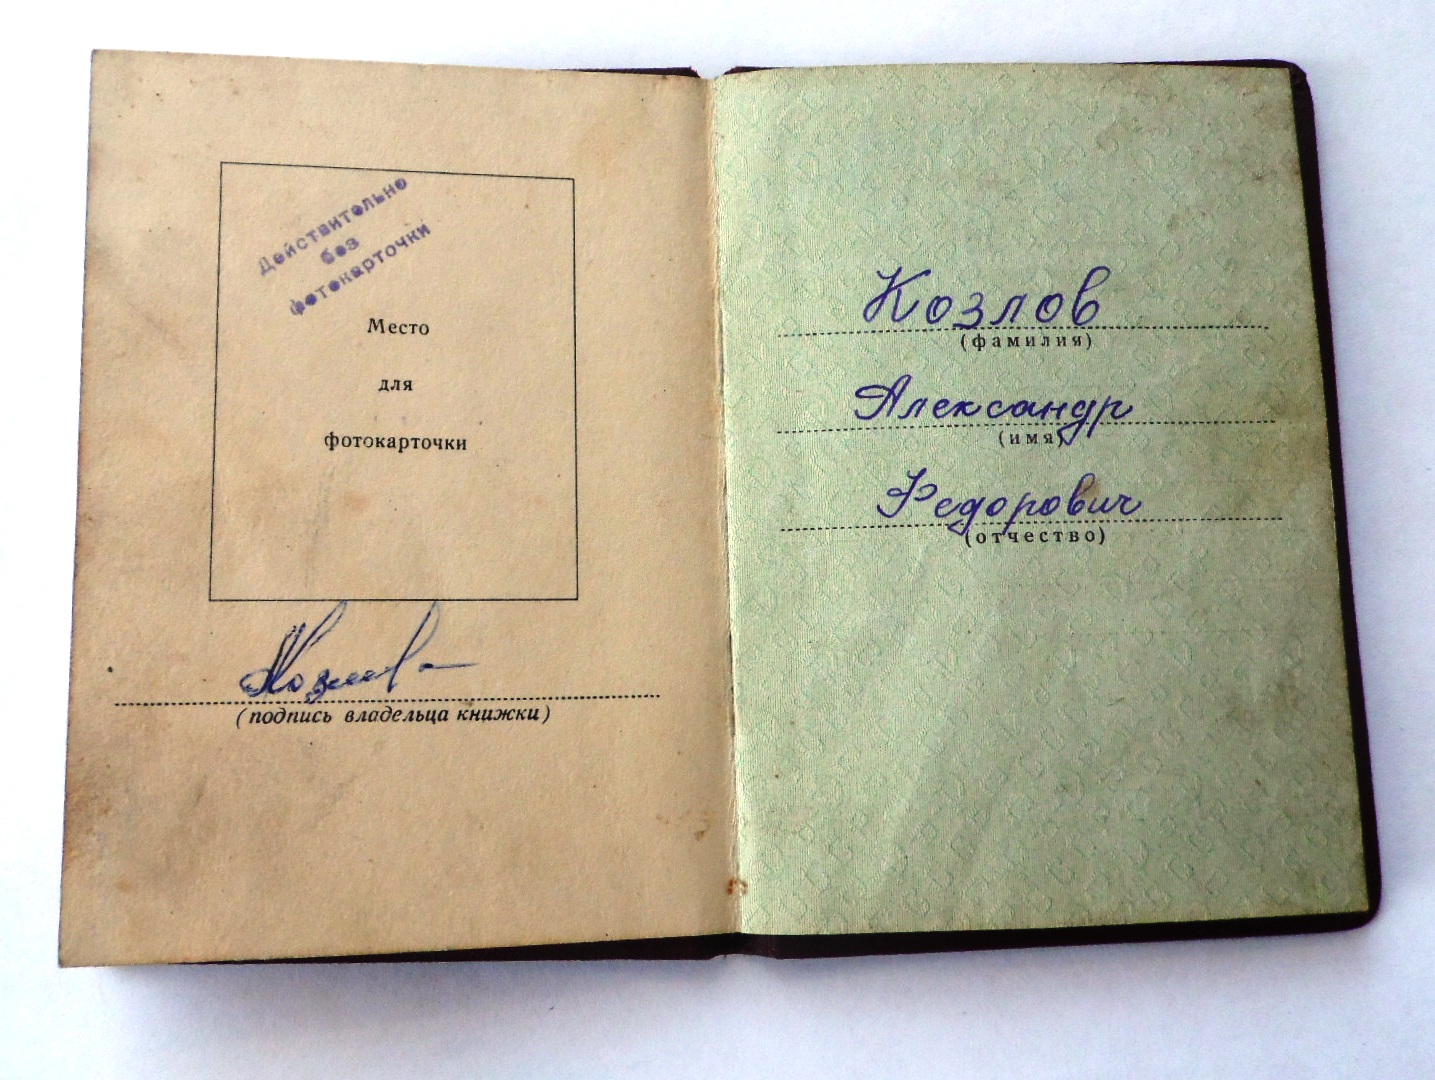 Действительно
без
фотокарточки
Место
для
фотокарточки
Козлов
(подпись владельца книжки)
Козлов
(фамилия)
Александр
(имя)
Федорович
(отчество)